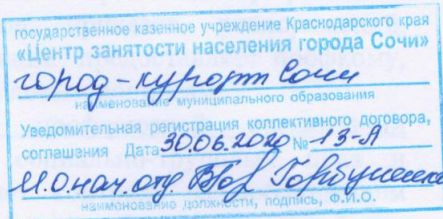 государственное казенное учреждение Краснодарского края
«Центр занятости населения города Сочи»
город-курорт Сочи
наименование муниципального образования
Уведомительная регистрация коллективного договора,
соглашения Дата 30.06.2020 № 13-А
И.о. нач. отд.
наименование должности, подпись, Ф.И.О.